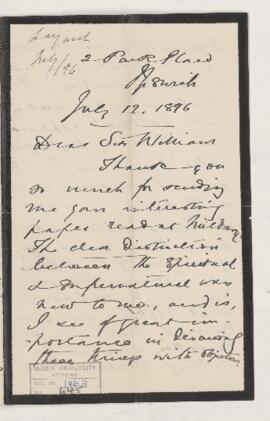 Layard
July/96
2. Park Place
Ipswich
July 12. 1896
Dear Sir William
Thank you
so much for sending
me your interesting
paper read at Hilding
The clear distinction
between the Spiritual
& Supernatural was
new to me, and is,
I see of great im-
portance in discussing
these things with objectors
McGILL UNIVERSITY
ACC. NO. 1463